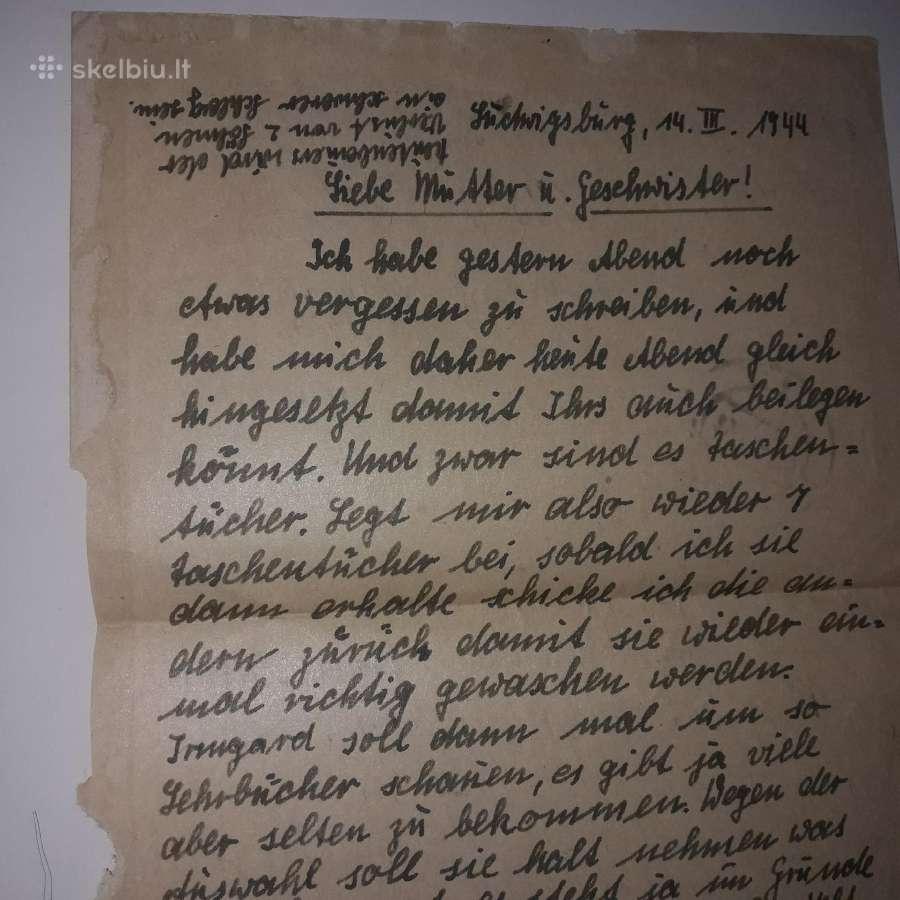 skelbiu.lt
Ludwigsburg, 14. III. 1944
wird der
Verlust von 2 Söhnen
ein schwerer Schlag sein.
Liebe Mutter u. Geschwister!
Ich habe gestern Abend noch
etwas vergessen zu schreiben, und
habe mich daher heute Abend gleich
hingesetzt damit Ihrs auch beilegen
könnt. Und zwar sind es Taschen=
tücher. Legt mir also wieder 7
Taschentücher bei, sobald ich sie
dann erhalte schicke ich die an=
dern zurück damit sie wieder ein=
mal richtig gewaschen werden.
Irmgard soll dann mal um so
Lehrbücher schauen, es gibt ja viele
aber selten zu bekommen. Wegen der
Auswahl soll sie halt nehmen was
steht ja im Grunde